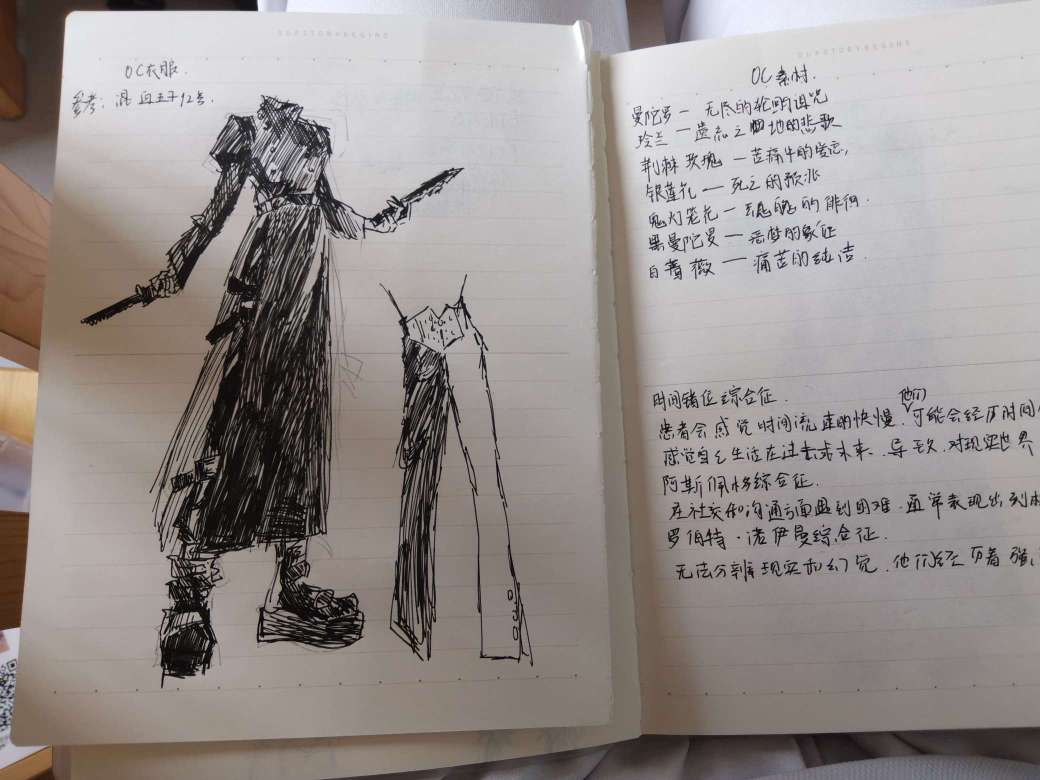 OURSTORYBEGINS
OC衣服.
参考:混血王子12号
OURSTORYBEGINS
OC素材.
曼陀罗—无尽的轮回诅咒
铃兰—遗忘之地的悲歌
荆棘玫瑰—苦痛中的爱恋,
银莲花—死亡的预兆
鬼灯笼花—鬼魂的徘徊.
黑曼陀罗—恶梦的象征
白蔷薇—痛苦的纯洁.
时间错位综合征.
患者会感觉时间流速的快慢.他们可能会经历时间
感觉自己生活在过去或未来.导致.对现实世界
阿斯佩格综合征.
在社交和沟通方面遇到困难.通常表现出刻板
罗伯特·诺伊曼综合征.
无法分辨现实和幻觉.他们经历着强